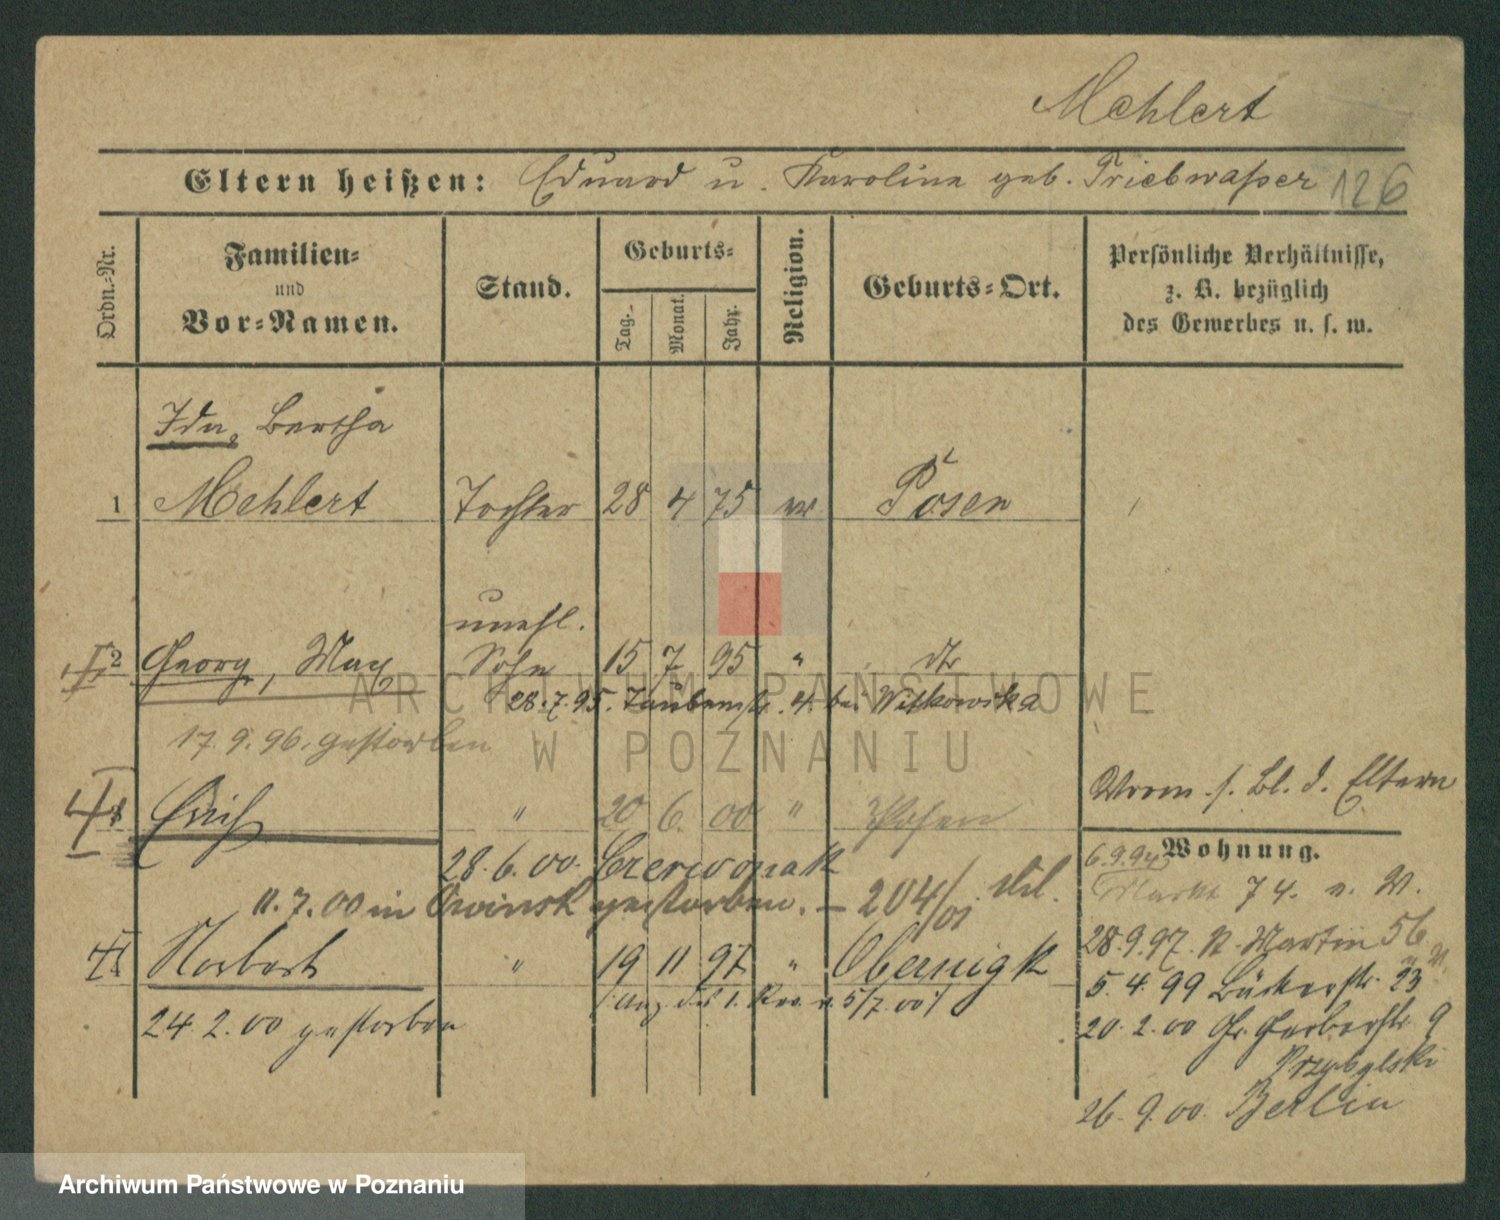 Mehlert
Eltern heißen: Eduard u. Karolina geb. Triebwasser 126
Ordn.-Nr.
Familien-
und
Vor-Namen.
Stand.
Geburts-
Tag.
Monat.
Jahr.
Religion.
Geburts-Ort.
Persönliche Verhältnisse,
z. B. bezüglich
des Gewerbes u. s. w.
Ida, Bertha
1 Mehlert Tochter 28 4 75 Posen
unehl.
2 Georg, Max Sohn 15 7 95 "
28.7.95. Taubenstr. 4. bei Witkowska
17.9.96. gestorben
ARCHIWUM PAŃSTWOWE
W POZNANIU
Vorm s. Bl. d. Eltern
Erich " 20 6. 00 " Posen
Wohnung.
28.6.00. Czerwonak
6.9.94
Markt 74. n. V.
11.7.00 in Owinsk gestorben. – 204/01
28.9.97. St. Martin 56
Norbert " 19 11 97 " Obernigk
5.4.99 Bäckerstr. 23
24.2.00 gestorben
20.2.00 Gr. Gerberstr. 9
Przybylski
26.9.00. Berlin
Archiwum Państwowe w Poznaniu